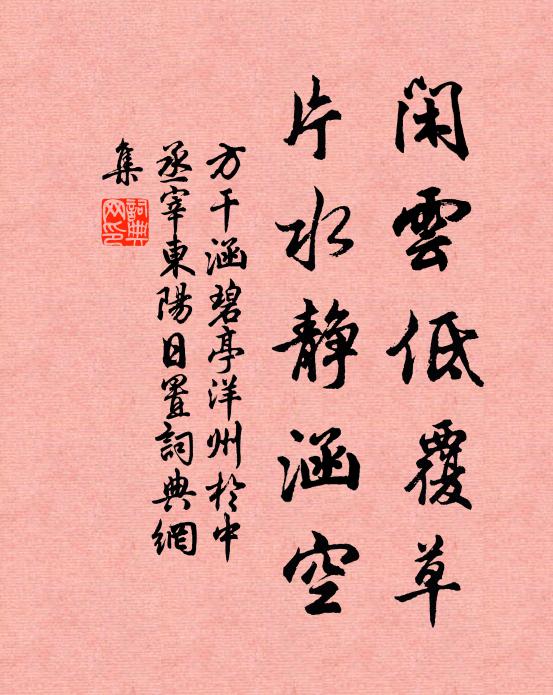 閑雲低覆草
片水静涵空
方干涵碧亭洋州於中
丞宰東陽日置詞典網
集
詞典網印